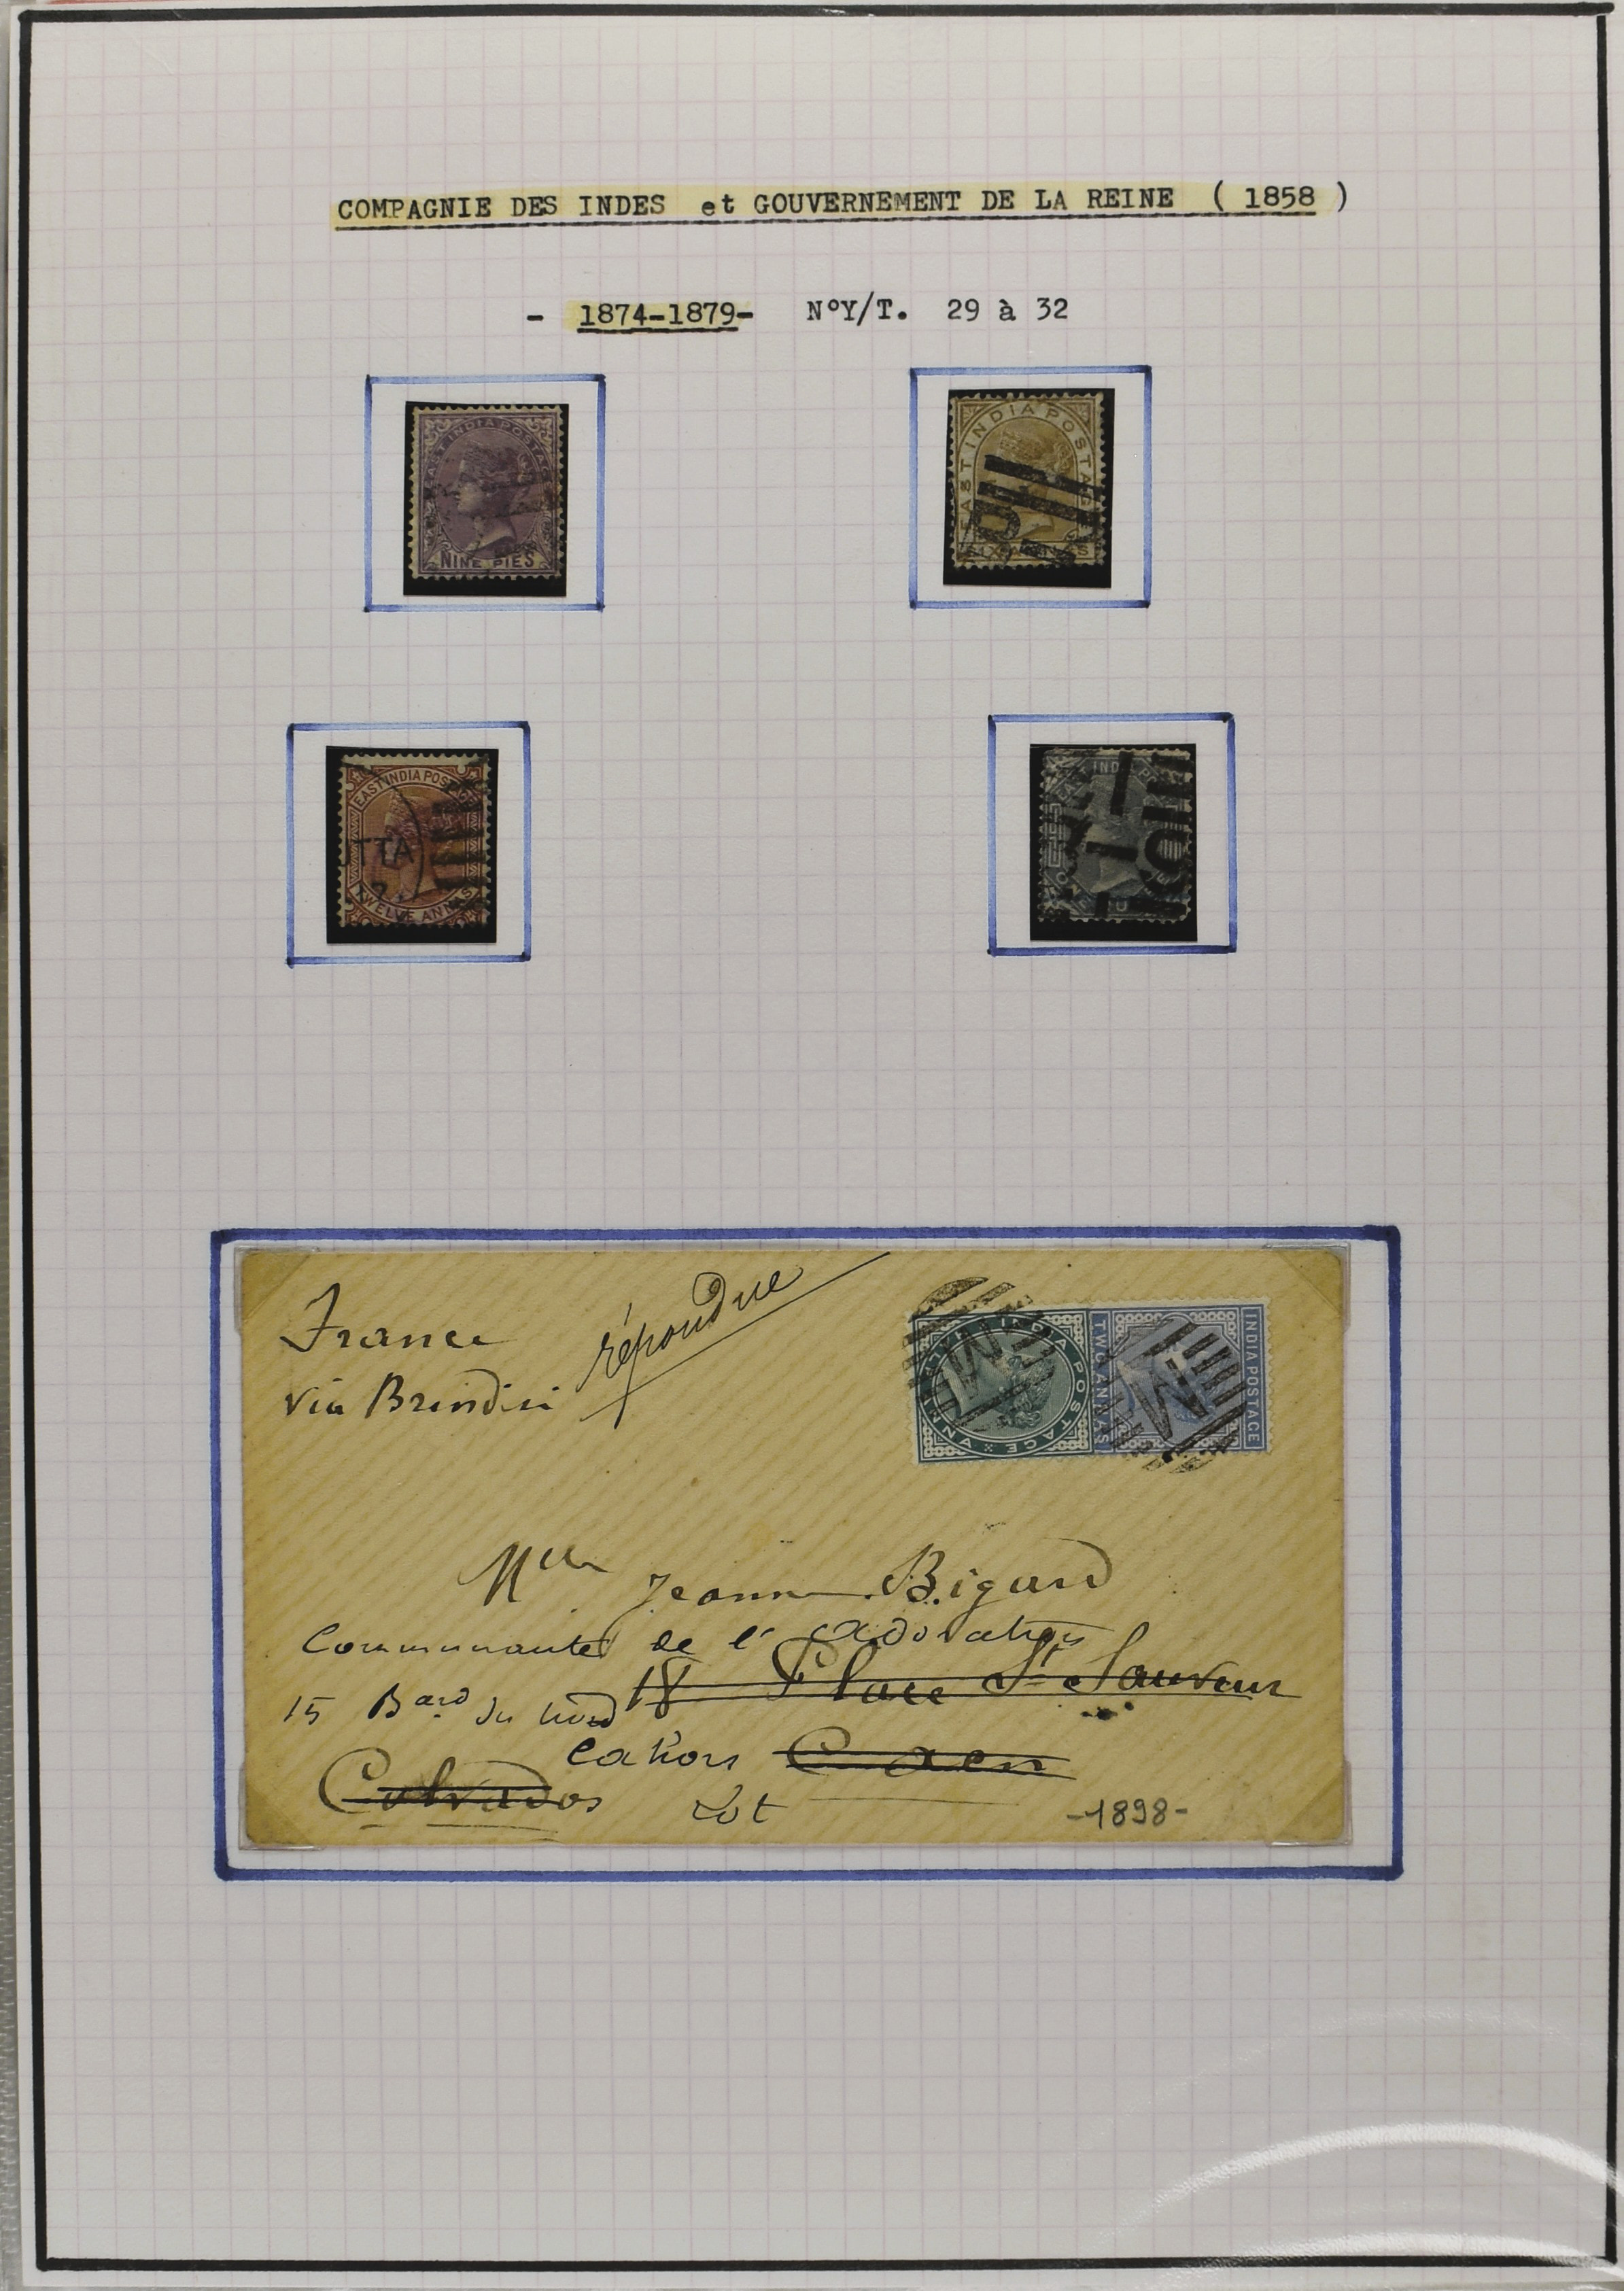 COMPAGNIE DES INDES et GOUVERNEMENT DE LA REINE ( 1858 )
- 1874-1879- N°Y/T. 29 à 32
EAST INDIA POSTAGE
NINE PIES
EAST INDIA POSTAGE
SIX ANNAS
EAST INDIA POSTAGE
TTA
TWELVE ANNAS
INDIA PO
France
répondue
via Brindisi
INDIA POSTAGE
HALF ANNA
M
INDIA POSTAGE
TWO ANNAS
M
Mlle Jeanne Bigard
Communauté de l'adoration
15 Bard du nord 18 Place St Sauveur
Cahors Caen
Calvados Lot
-1898-